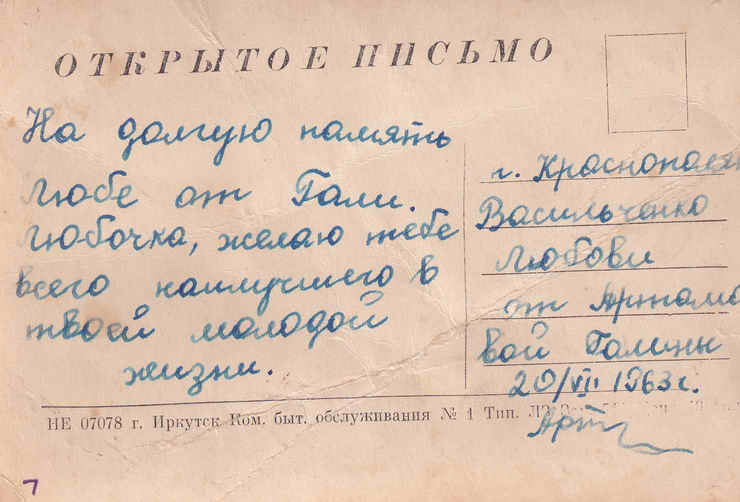 ОТКРЫТОЕ ПИСЬМО
На долгую память
Любе от Гали.
Любочка, желаю тебе
всего наилучшего в
твоей молодой
жизни.
г. Краснополян
Васильченко
Любови
от Артамо
вой Галины
20/VII 1963 г.
НЕ 07078 г. Иркутск Ком. быт. обслуживания № 1 Тип.
Арт
7